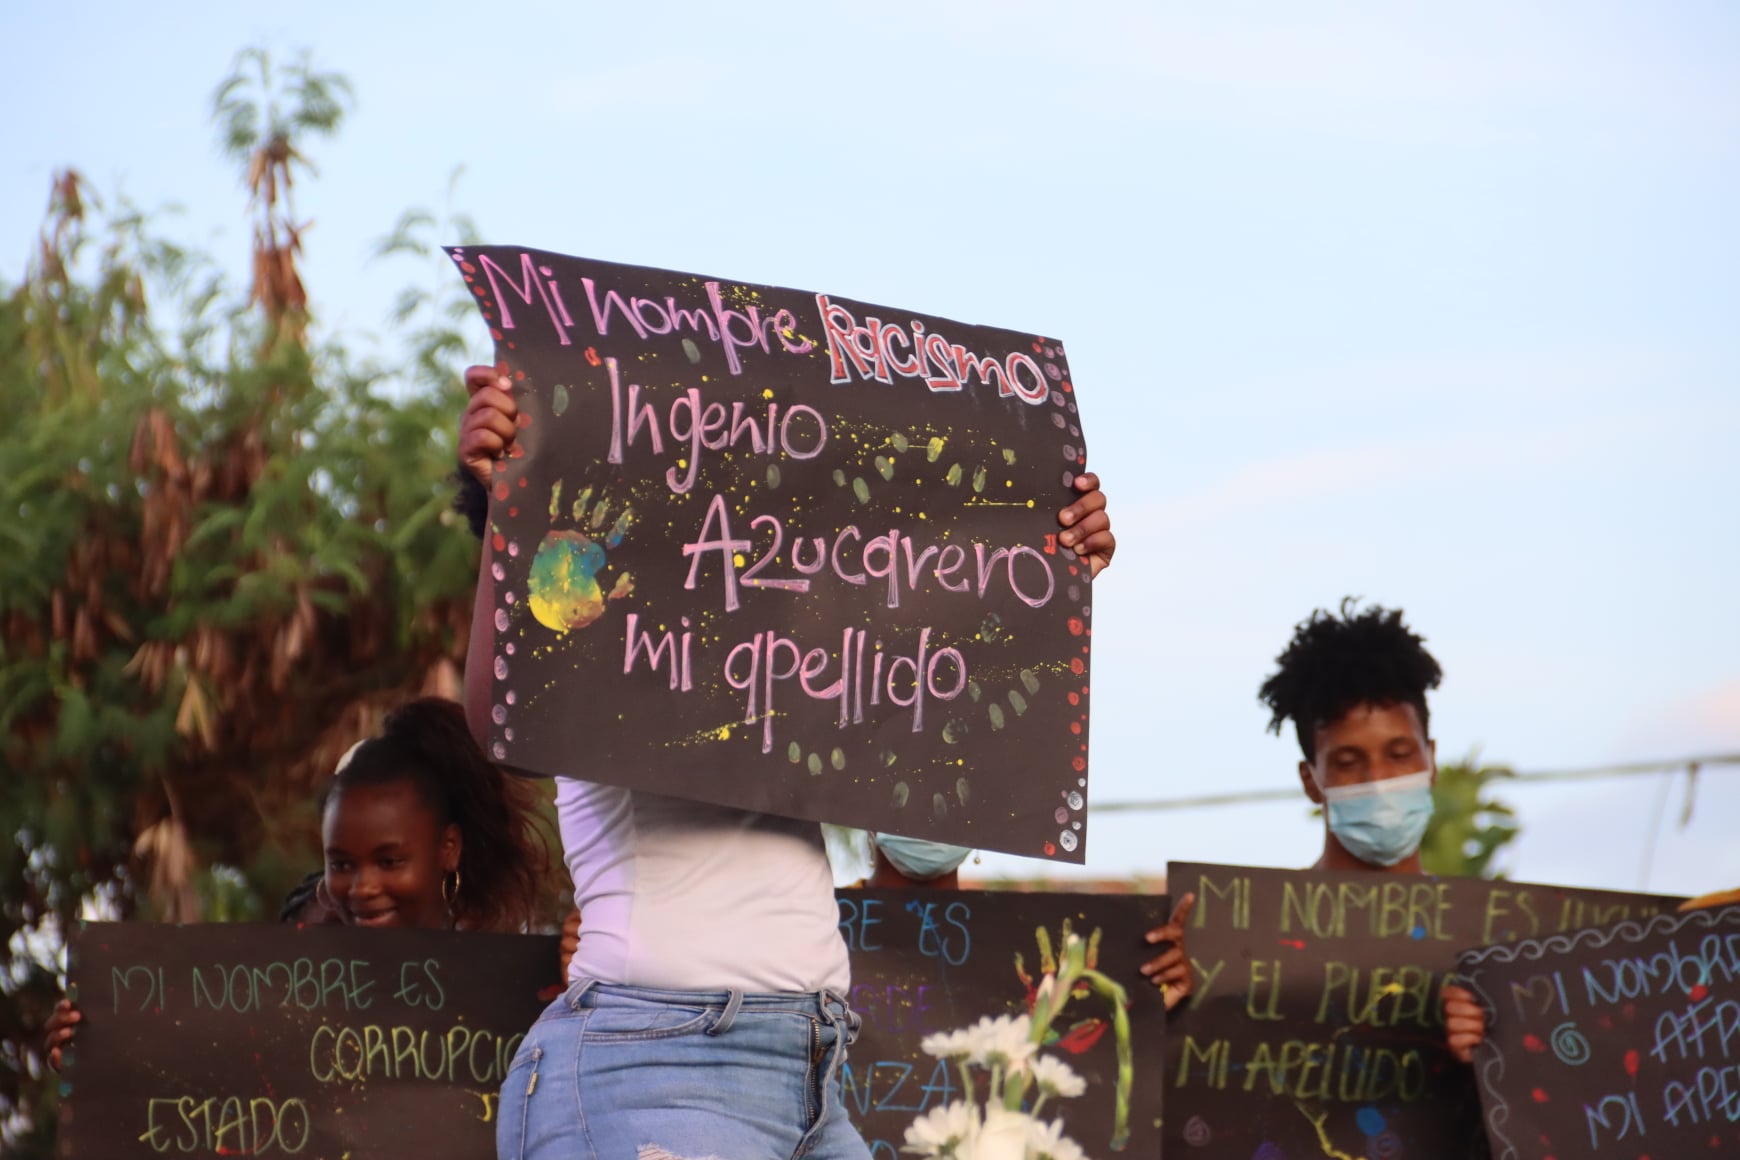 Mi nombre Racismo
Ingenio
Azucarero
mi apellido
MI NOMBRE ES
CORRUPCIO
ESTADO
RE ES
NZA
MI NOMBRE ES
Y EL PUEBLO
MI APELLIDO
MI NOMBRE
AFR
MI APE